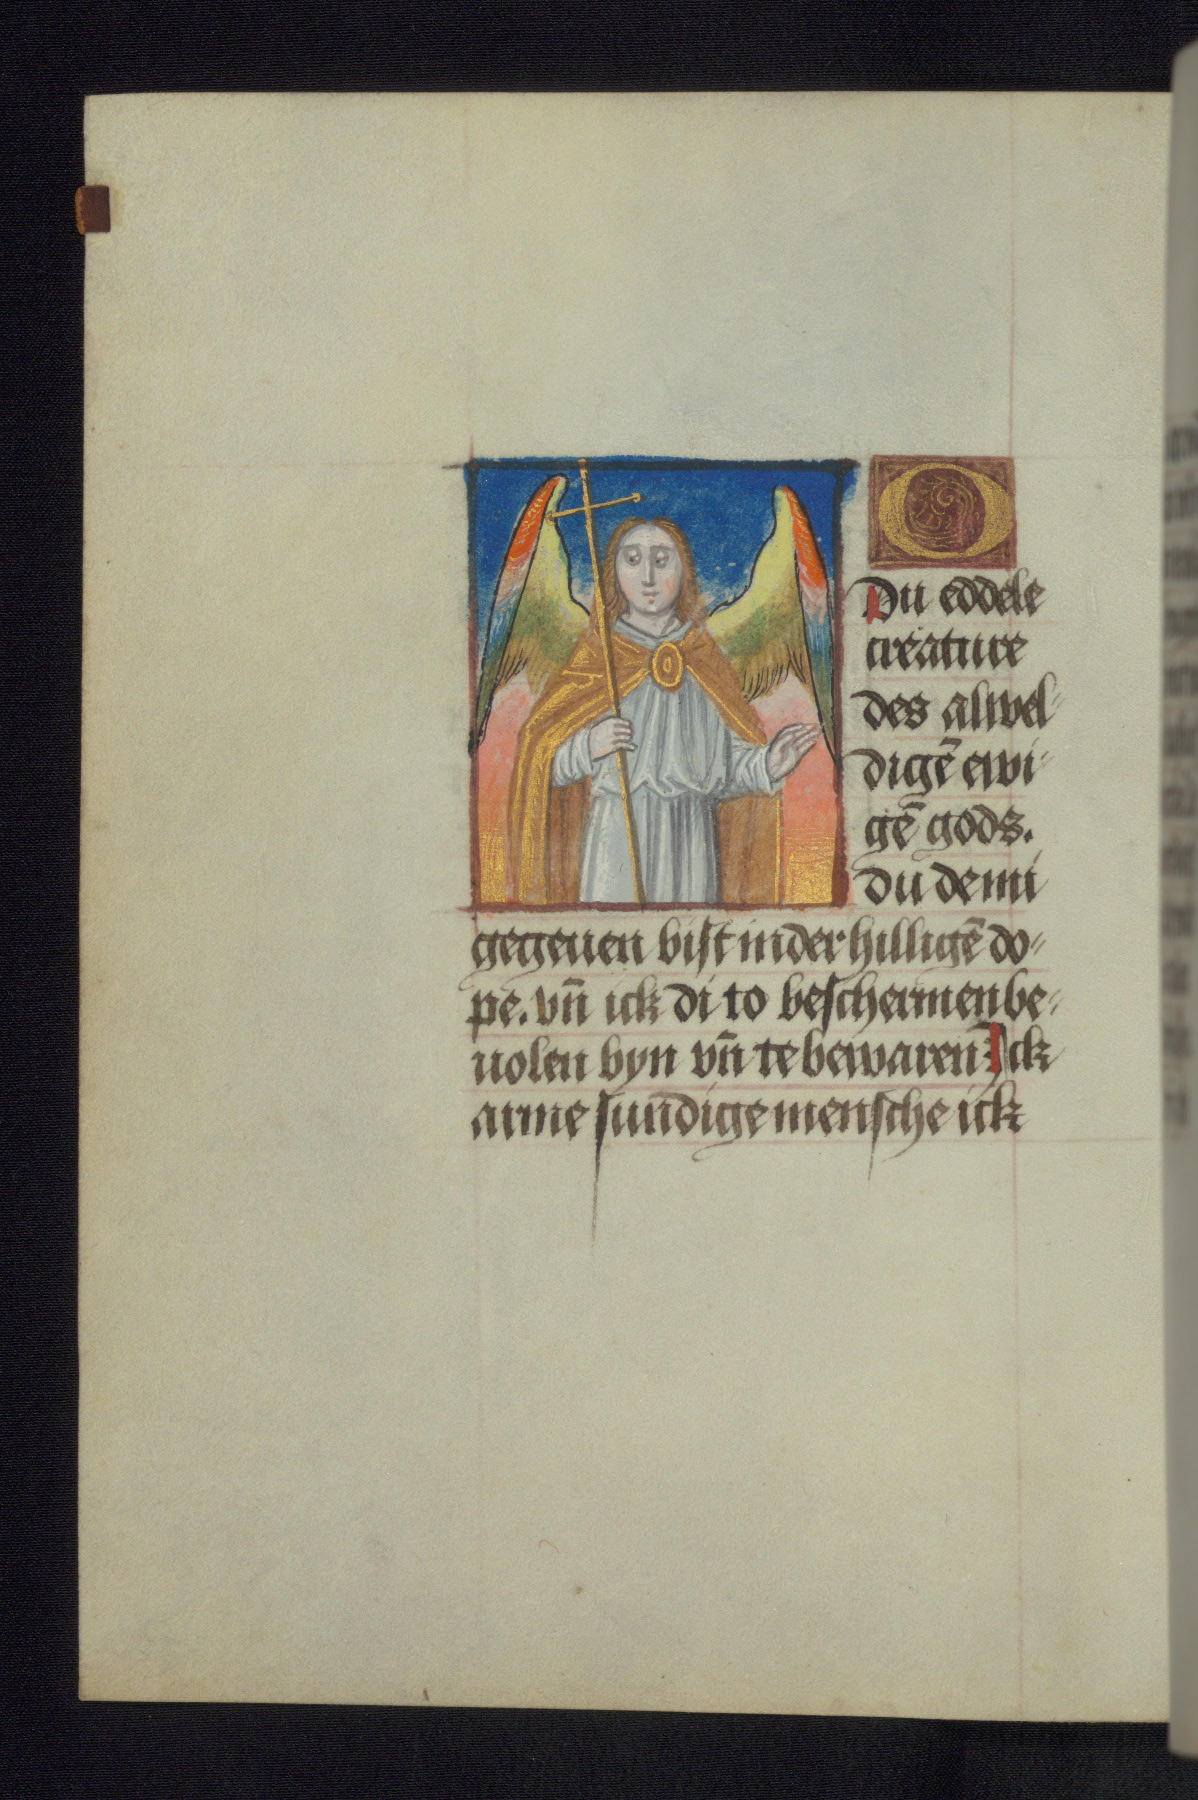 O
Du eddele
creature
des alwel-
digē ewi-
gē gods.
du demi
gegeuen bist in der hilligē do-
pe. vn̄ ick di to beschermen be-
uolen byn vn̄ te bewaren Ick
arme sundige mensche ick